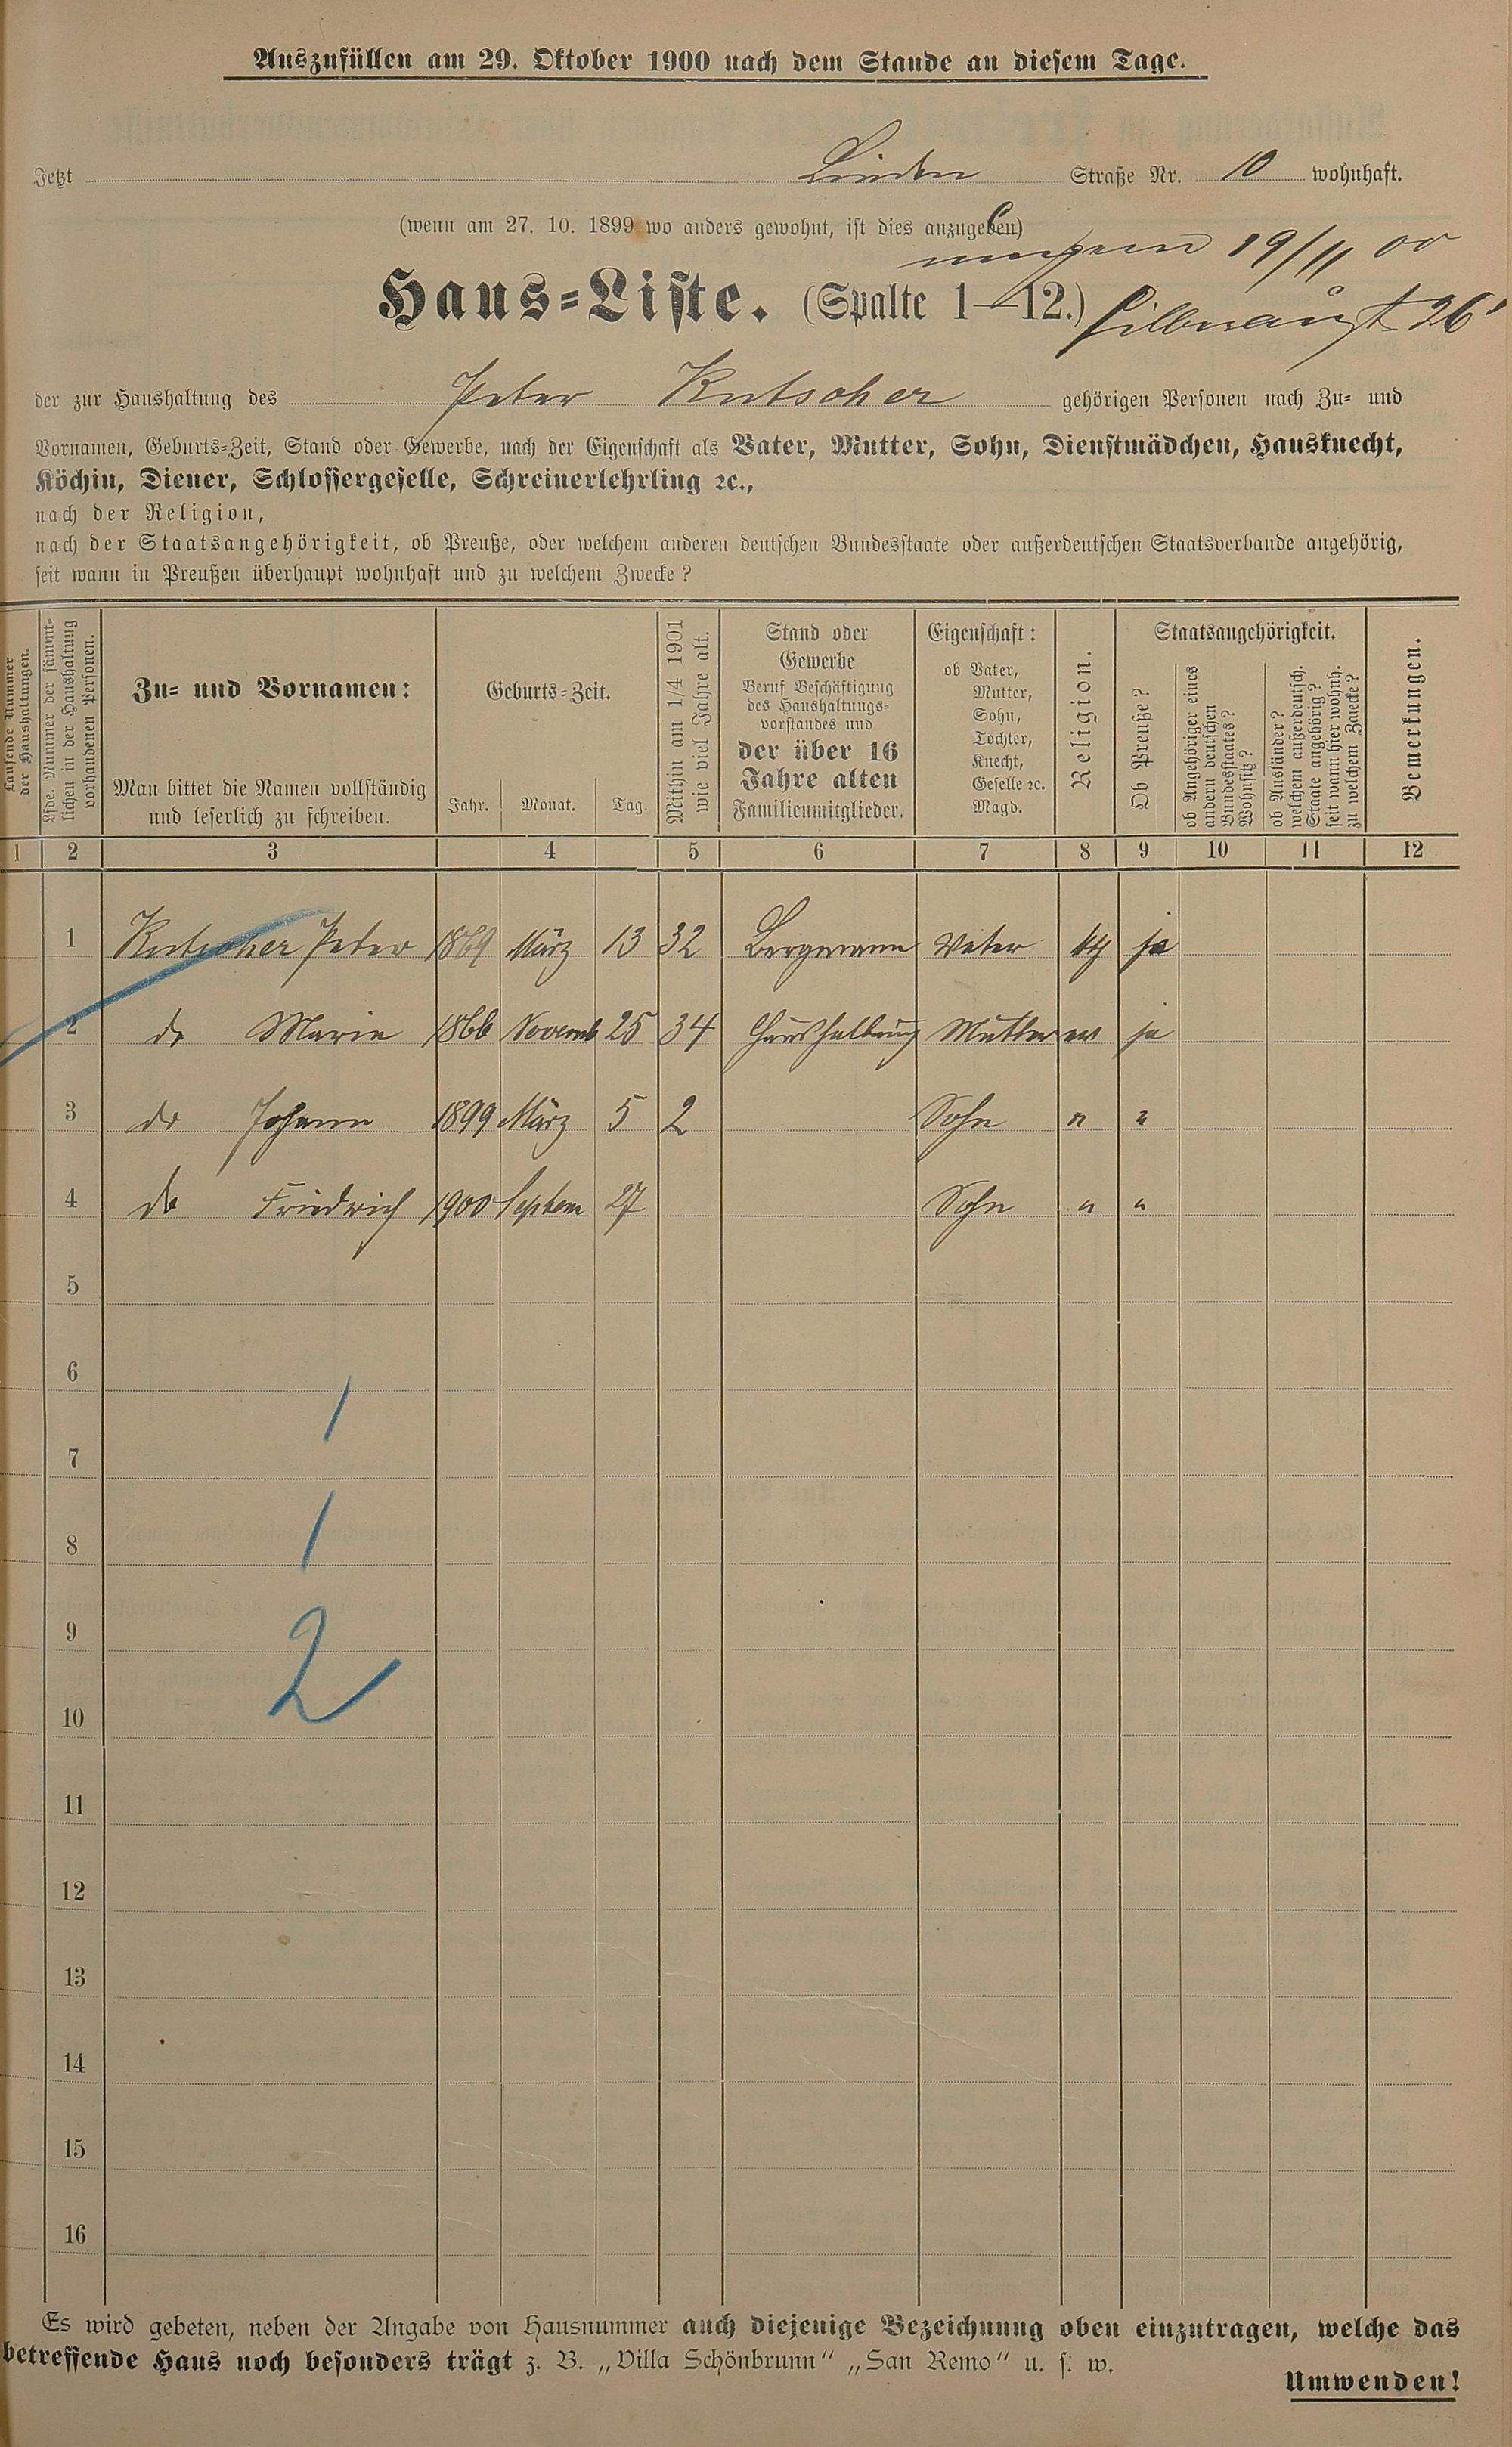 Auszufüllen am 29. Oktober 1900 nach dem Stande an diesem Tage.
Jetzt Linden Straße Nr. 10 wohnhaft.
(wenn am 27. 10. 1899 wo anders gewohnt, ist dies anzugeben)
19/11 00
Haus-Liste. (Spalte 1–12.)
26
der zur Haushaltung des Peter Kutscher gehörigen Personen nach Zu- und
Vornamen, Geburts-Zeit, Stand oder Gewerbe, nach der Eigenschaft als Vater, Mutter, Sohn, Dienstmädchen, Hausknecht,
Köchin, Diener, Schlossergeselle, Schreinerlehrling ꝛc.,
nach der Religion,
nach der Staatsangehörigkeit, ob Preuße, oder welchem anderen deutschen Bundesstaate oder außerdeutschen Staatsverbande angehörig,
seit wann in Preußen überhaupt wohnhaft und zu welchem Zwecke?
Laufende Nummer
der Haushaltungen.
Lfde. Nummer der sämmt-
lichen in der Haushaltung
vorhandenen Personen.
Zu- und Vornamen:
Man bittet die Namen vollständig
und leserlich zu schreiben.
Geburts-Zeit.
Jahr. Monat. Tag.
Mithin am 1/4 1901
wie viel Jahre alt.
Stand oder
Gewerbe
Beruf Beschäftigung
des Haushaltungs-
vorstandes und
der über 16
Jahre alten
Familienmitglieder.
Eigenschaft:
ob Vater,
Mutter,
Sohn,
Tochter,
Knecht,
Geselle ꝛc.
Magd.
Religion.
Staatsangehörigkeit.
Ob Preuße?
ob Angehöriger eines
andern deutschen
Bundesstaates?
Wohnsitz?
ob Ausländer?
welchem außerdeutsch.
Staate angehörig?
seit wann hier wohnh.
zu welchem Zwecke?
Bemerkungen.
1 2 3 4 5 6 7 8 9 10 11 12
1 Kutscher Peter 1869 März 13 32 Bergmann Vater ja
2 do Maria 1866 Novemb 25 34 Haushaltung Mutter ja
3 do Johann 1899 März 5 2 Sohn " "
4 do Friedrich 1900 Septem 27 Sohn " "
5
6
1
7
1
8
9
2
10
11
12
13
14
15
16
Es wird gebeten, neben der Angabe von Hausnummer auch diejenige Bezeichnung oben einzutragen, welche das
betreffende Haus noch besonders trägt z. B. „Villa Schönbrunn" „San Remo" u. s. w.
Umwenden!